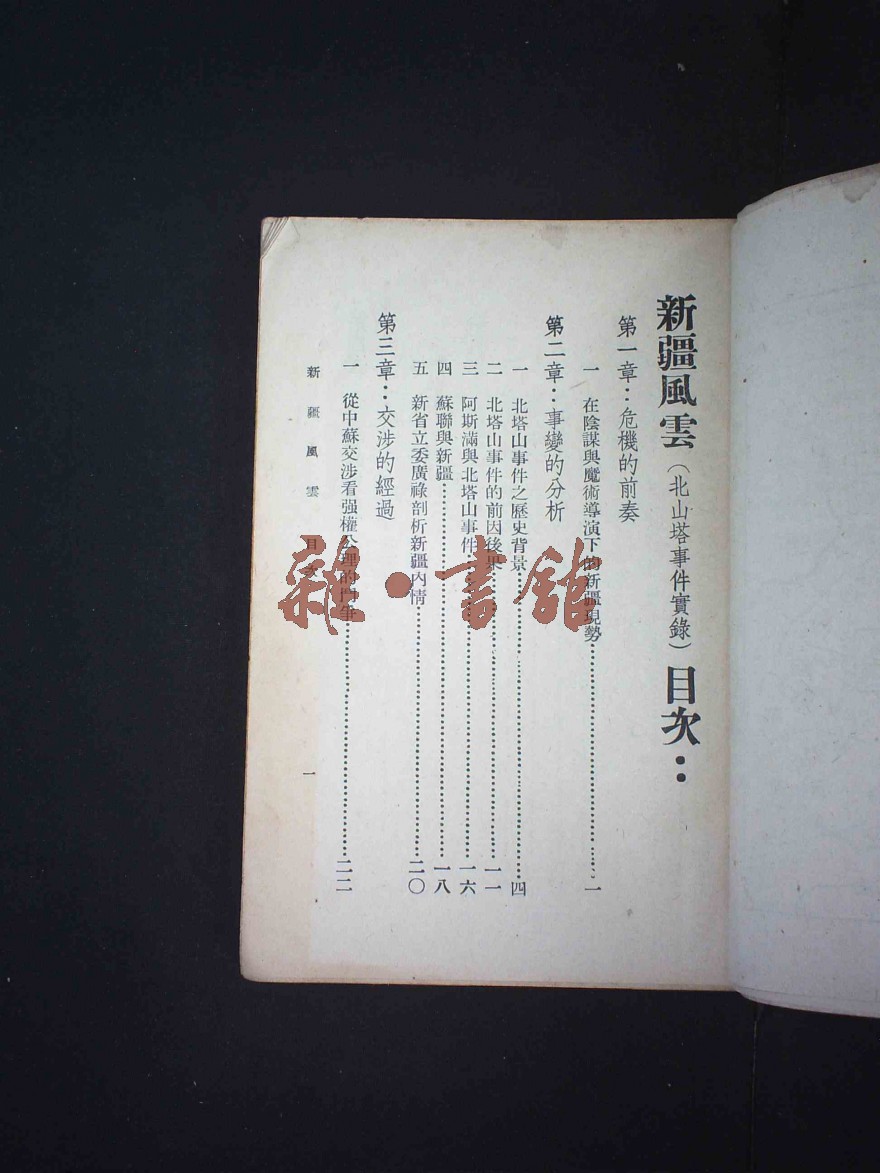 新疆風雲（北山塔事件實錄）目次：
第一章：危機的前奏
一 在陰謀與魔術導演下的新疆現勢……一
第二章：事變的分析
一 北塔山事件之歷史背景……四
二 北塔山事件的前因後果……一一
三 阿斯滿與北塔山事件……一六
四 蘇聯與新疆……一八
五 新省立委廣祿剖析新疆內情……二〇
第三章：交涉的經過
一 從中蘇交涉看强權公理的鬥爭……二二
新疆風雲 目次
一
雜·書館